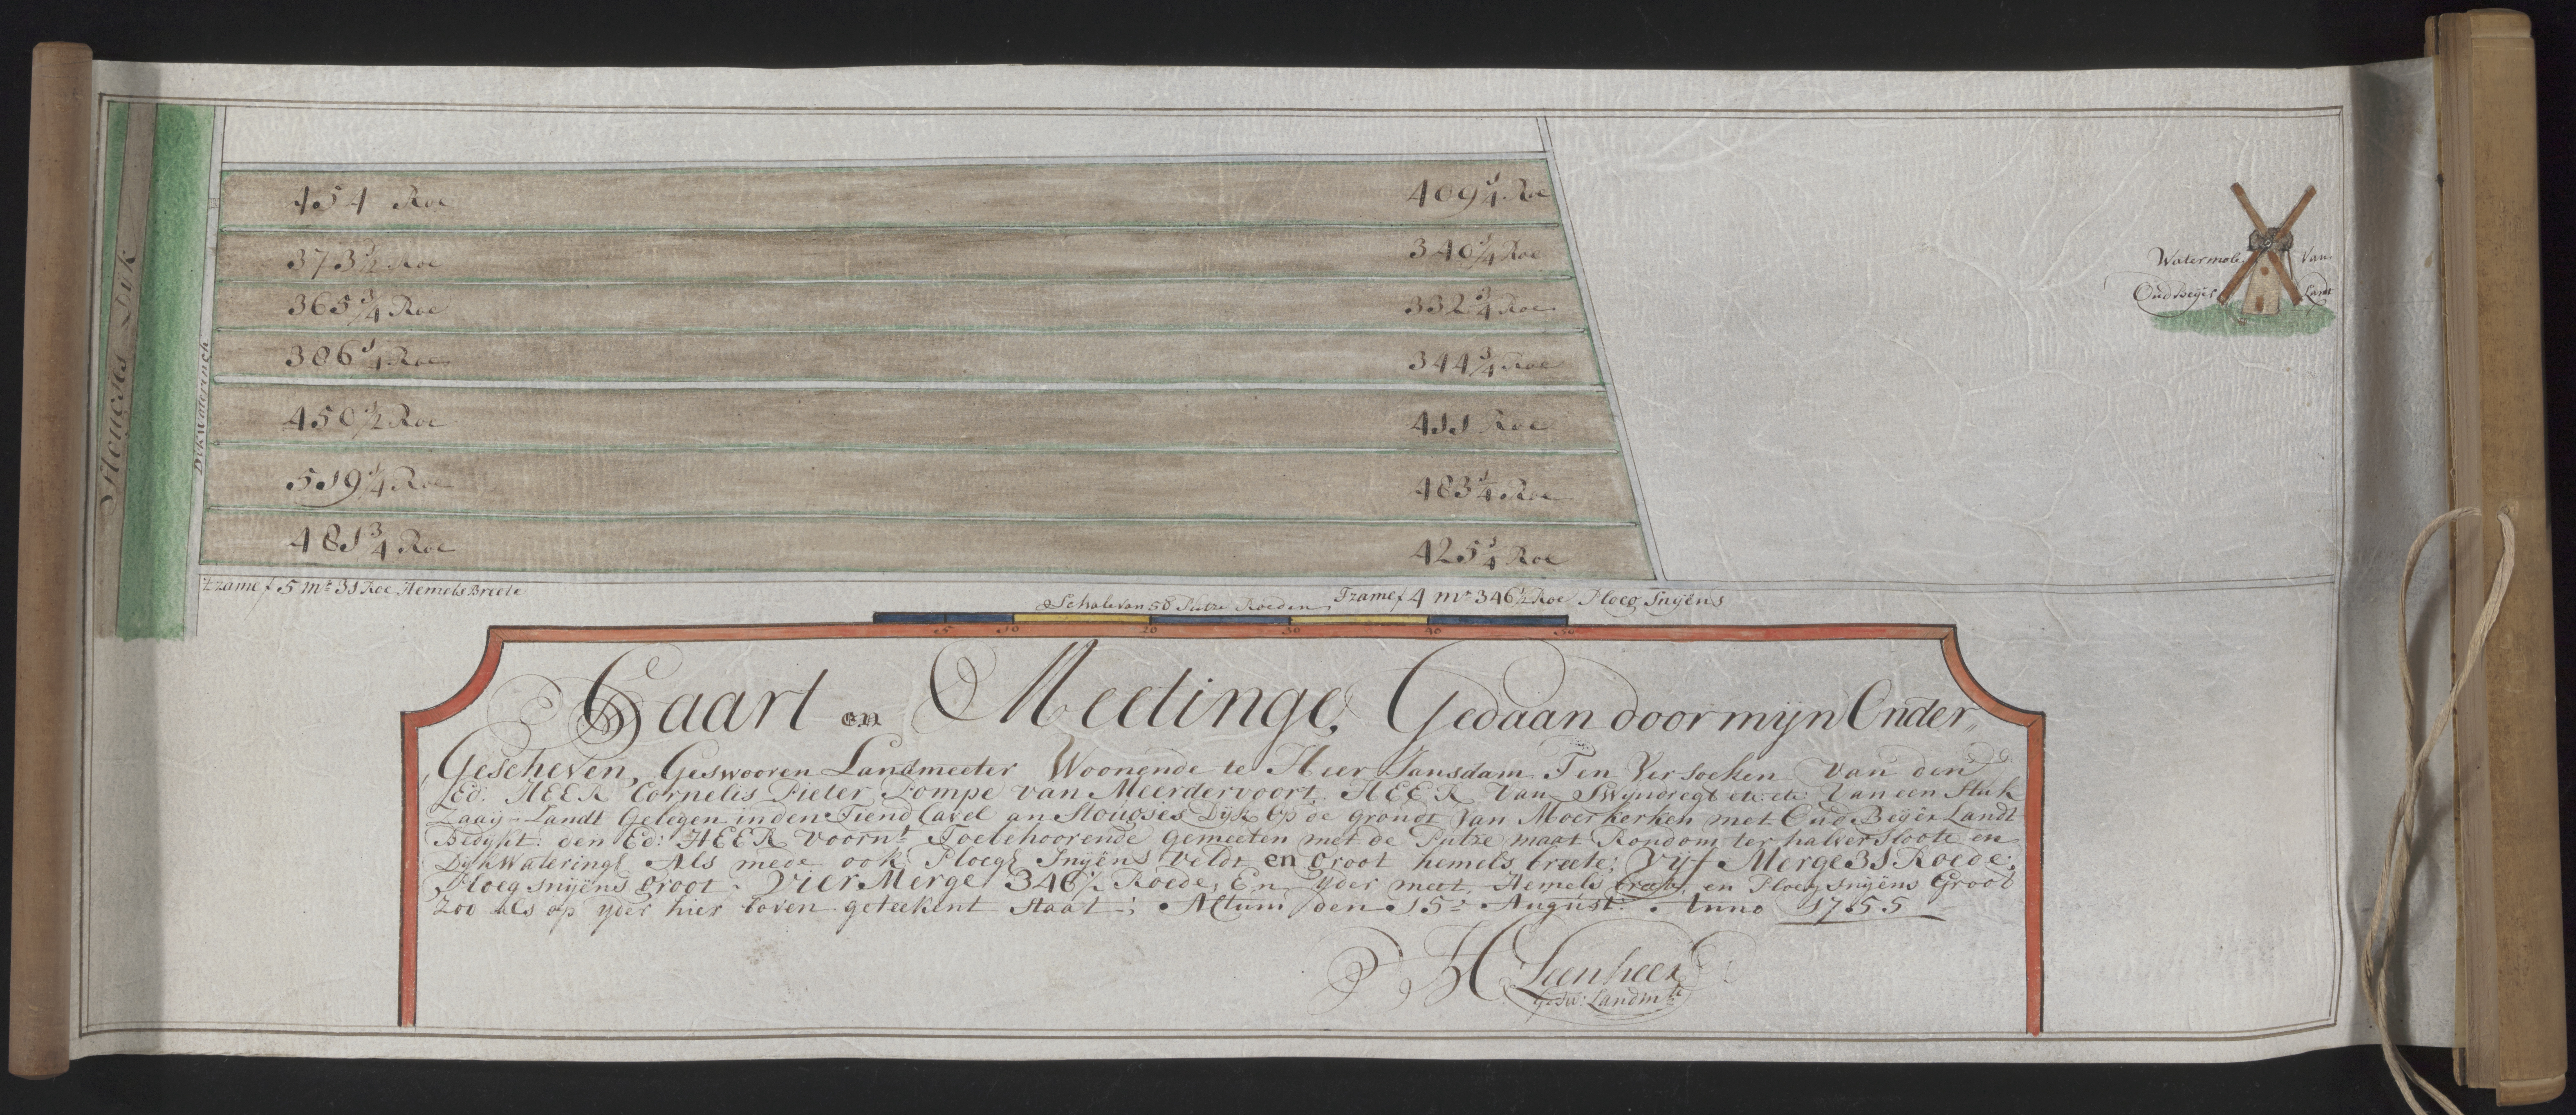 454 Roe
409 1/4 Roe
373 1/2 Roe
340 1/4 Roe
365 3/4 Roe
332 3/4 Roe
386 1/4 Roe
344 3/4 Roe
450 1/2 Roe
411 Roe
519 1/4 Roe
483 1/4 Roe
481 3/4 Roe
425 1/4 Roe
Dyk
Dykwaterinch
Watermole Van
Oud Beyer Landt
Tzame 5 mr 31 Roe Hemels Breete
Schale van 50 Putze Roeden
Tzame 4 mr 346 1/2 Roe Ploeg Snyëns
5 10 20 30 40 50
Caart en Meetinge, Gedaan door mijn Onder,,
,,Gescheven, Geswooren Landmeeter Woonende te Heer Jansdam Ten Versoeken Van den
Ed: HEER Cornelis Pieter Pompe van Meerdervoort HEER Van Swyndregt etc: etc: Van een Stuk
Zaaij-Landt Gelegen in den Tiend Cavel an Stougjes Dyk Op de grondt Van Moerkerken met Oud Beyer Landt
Bedykt: den Ed: HEER voornt Toebehoorende gemeeten met de Putze maat Rondom ter halver Sloote en
Dyk Wateringe Als mede ook Ploegs Snyëns Veldt en Groot hemels breete; Vyf Merge 31 Roede;
Ploeg snyëns groot Vier Merge 346 1/2 Roede, En Yder meet, Hemels breete, en Ploeg Snyëns Groot
Zoo als op yder hier boven geteekent Staat; Actum den 15e August: Anno 1755
H Leenheer
Gesw: Landmtr